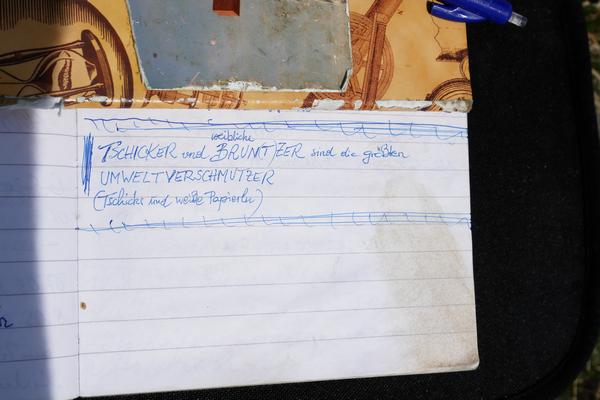 weibliche
TSCHICKER und BRUN(T)ZER sind die größten
UMWELTVERSCHMUTZER
(Tschicks und weiße Papierln)